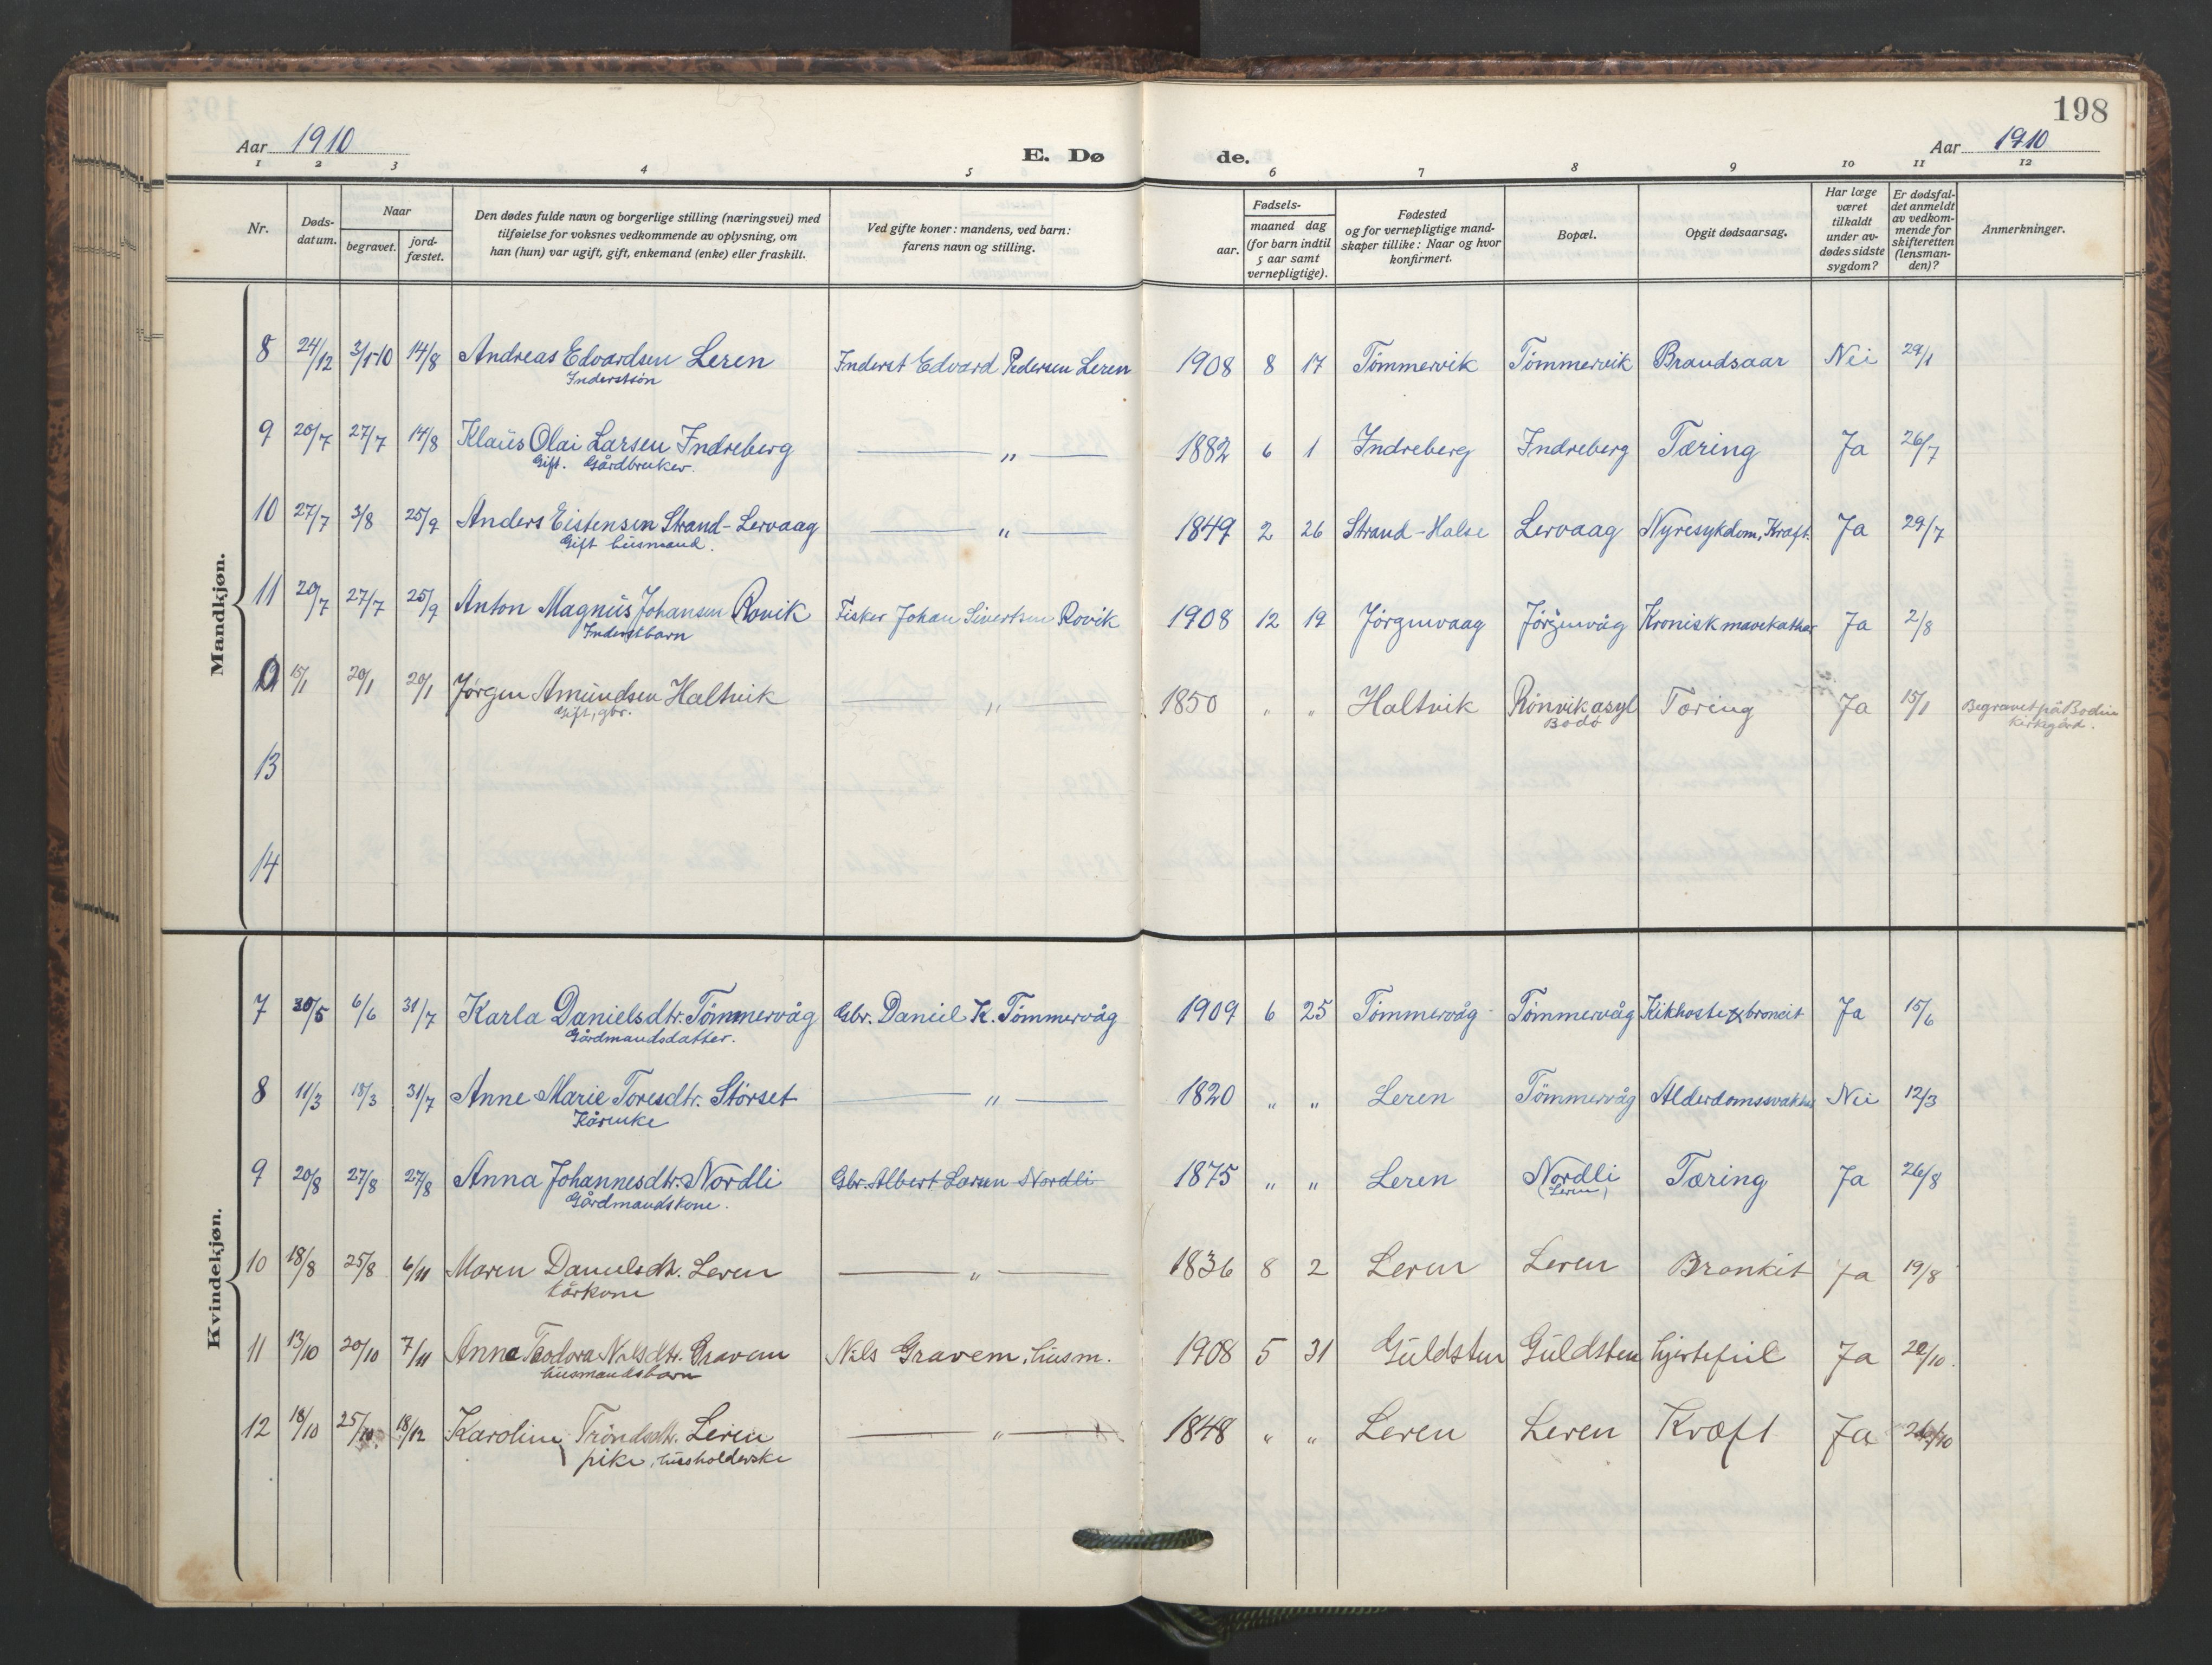 198
Aar 1910
E. Dø
de.
Aar 1910
1 2 3 4 5 6 7 8 9 10 11 12
Nr.
Døds-
datum.
Naar
begravet.
jord-
fæstet.
Den dødes fulde navn og borgerlige stilling (næringsvei) med
tilføielse for voksnes vedkommende av oplysning, om
han (hun) var ugift, gift, enkemand (enke) eller fraskilt.
Ved gifte koner: mandens, ved barn:
farens navn og stilling.
Fødsels-
aar.
maaned dag
(for barn indtil
5 aar samt
vernepligtige).
Fødested
og for vernepligtige mand-
skaper tillike: Naar og hvor
konfirmert.
Bopæl.
Opgit dødsaarsag.
Har læge
været
tilkaldt
under av-
dødes sidste
sygdom?
Er dødsfal-
det anmeldt
av vedkom-
mende for
skifteretten
(lensman-
den)?
Anmerkninger.
Mandkjøn.
8 24/12 3/1-10 14/8 Andreas Edvardsen Leren Inderst Edvard Pedersen Leren 1908 8 17 Tömmervik Tömmervik Brandsaar Nei 29/1
Inderstsön
9 20/7 27/7 14/8 Klaus Olai Larsen Indreberg " 1882 6 1 Indreberg Indreberg Tæring Ja 26/7
Gift. Gårdbruker.
10 27/7 3/8 25/9 Anders Eistensen Strand-Lervaag " 1849 2 26 Strand-Halse Lervaag Nyresykdom, Kræft. Ja 29/7
Gift husmand.
11 20/7 27/7 25/9 Anton Magnus Johansen Rovik Fisker Johan Sivertsen Rovik 1908 12 19 Jörgenvaag Jörgenvåg Kronisk mavekathar Ja 2/8
Inderstbarn
15/1 20/1 20/1 Jörgen Amundsen Haltvik " 1850 " " Haltvik Rönvik asyl Tæring Ja 15/1 Begravet på Bodin
Gift, gbr. Bodö kirkegård.
13
14
Kvindekjøn.
7 30/5 6/6 31/7 Karla Danielsdtr. Tömmervåg Gbr. Daniel K. Tömmervåg 1909 6 25 Tömmervåg Tömmervåg Kikhoste & broncit Ja 15/6
Gårdmandsdatter.
8 11/3 18/3 31/7 Anne Marie Toresdtr. Störset " 1820 " " Leren Tömmervåg Alderdomssvakhet Nei 12/3
Kårenke
9 20/8 27/8 27/8 Anna Johannesdtr. Nordli Gbr. Albert Larsen Nordli 1875 " " Leren Nordli Tæring Ja 26/8
Gårdmandskone. (Leren)
10 18/8 25/8 6/11 Maren Danielsdtr. Leren " 1836 8 2 Leren Leren Bronkit Ja 19/8
kårkone
11 13/10 20/10 7/11 Anna Teodora Nilsdtr. Gravem Nils Gravem, husm. 1908 5 31 Guldsten Guldsten hjertefeil Ja 20/10.
husmandsbarn
12 18/10 25/10 18/12 Karoline Tröndsdtr. Leren " 1848 " " Leren Leren Kræft Ja
pike, husholderske